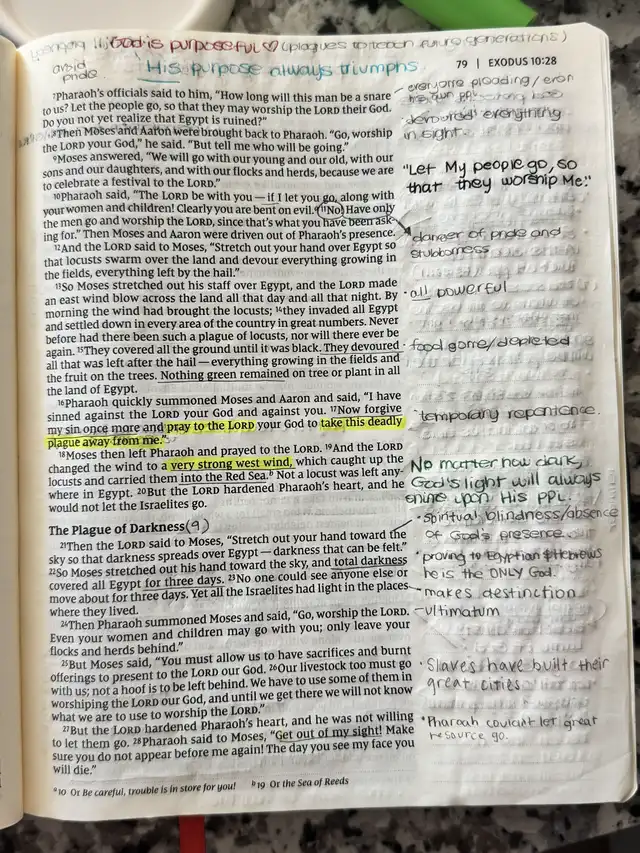 God is purposeful ♡ (plagues to teach future generations)
avoid pride
His purpose always triumphs
79 | EXODUS 10:28
⁷Pharaoh's officials said to him, “How long will this man be a snare
to us? Let the people go, so that they may worship the LORD their God.
Do you not yet realize that Egypt is ruined?”
⁸Then Moses and Aaron were brought back to Pharaoh. “Go, worship
the LORD your God,” he said. “But tell me who will be going.”
⁹Moses answered, “We will go with our young and our old, with our
sons and our daughters, and with our flocks and herds, because we are
to celebrate a festival to the LORD.”
¹⁰Pharaoh said, “The LORD be with you — if I let you go, along with
your women and children! Clearly you are bent on evil.ᵃ ¹¹No! Have only
the men go and worship the LORD, since that's what you have been ask-
ing for.” Then Moses and Aaron were driven out of Pharaoh's presence.
¹²And the LORD said to Moses, “Stretch out your hand over Egypt so
that locusts swarm over the land and devour everything growing in
the fields, everything left by the hail.”
¹³So Moses stretched out his staff over Egypt, and the LORD made
an east wind blow across the land all that day and all that night. By
morning the wind had brought the locusts; ¹⁴they invaded all Egypt
and settled down in every area of the country in great numbers. Never
before had there been such a plague of locusts, nor will there ever be
again. ¹⁵They covered all the ground until it was black. They devoured
all that was left after the hail — everything growing in the fields and
the fruit on the trees. Nothing green remained on tree or plant in all
the land of Egypt.
¹⁶Pharaoh quickly summoned Moses and Aaron and said, “I have
sinned against the LORD your God and against you. ¹⁷Now forgive
my sin once more and pray to the LORD your God to take this deadly
plague away from me.”
¹⁸Moses then left Pharaoh and prayed to the LORD. ¹⁹And the LORD
changed the wind to a very strong west wind, which caught up the
locusts and carried them into the Red Sea.ᵇ Not a locust was left any-
where in Egypt. ²⁰But the LORD hardened Pharaoh's heart, and he
would not let the Israelites go.
The Plague of Darkness (9)
²¹Then the LORD said to Moses, “Stretch out your hand toward the
sky so that darkness spreads over Egypt — darkness that can be felt.”
²²So Moses stretched out his hand toward the sky, and total darkness
covered all Egypt for three days. ²³No one could see anyone else or
move about for three days. Yet all the Israelites had light in the places
where they lived.
²⁴Then Pharaoh summoned Moses and said, “Go, worship the LORD.
Even your women and children may go with you; only leave your
flocks and herds behind.”
²⁵But Moses said, “You must allow us to have sacrifices and burnt
offerings to present to the LORD our God. ²⁶Our livestock too must go
with us; not a hoof is to be left behind. We have to use some of them in
worshiping the LORD our God, and until we get there we will not know
what we are to use to worship the LORD.”
²⁷But the LORD hardened Pharaoh's heart, and he was not willing
to let them go. ²⁸Pharaoh said to Moses, “Get out of my sight! Make
sure you do not appear before me again! The day you see my face you
will die.”
ᵃ10 Or Be careful, trouble is in store for you! ᵇ19 Or the Sea of Reeds
everyone pleading/even
his own ppl
· devoured everything
in sight
"Let My people go, so
that they worship Me."
danger of pride and
stubborness
· all powerful
· food gone/depleted
· temporary repentance.
No matter how dark,
God's light will always
shine upon His ppl.
· spiritual blindness/absence
of God's presence
· proving to Egyptian & Hebrews
he is the ONLY God.
makes destinction
- ultimatum
· Slaves have built their
great cities
· Pharaoh couldn't let great
resource go.